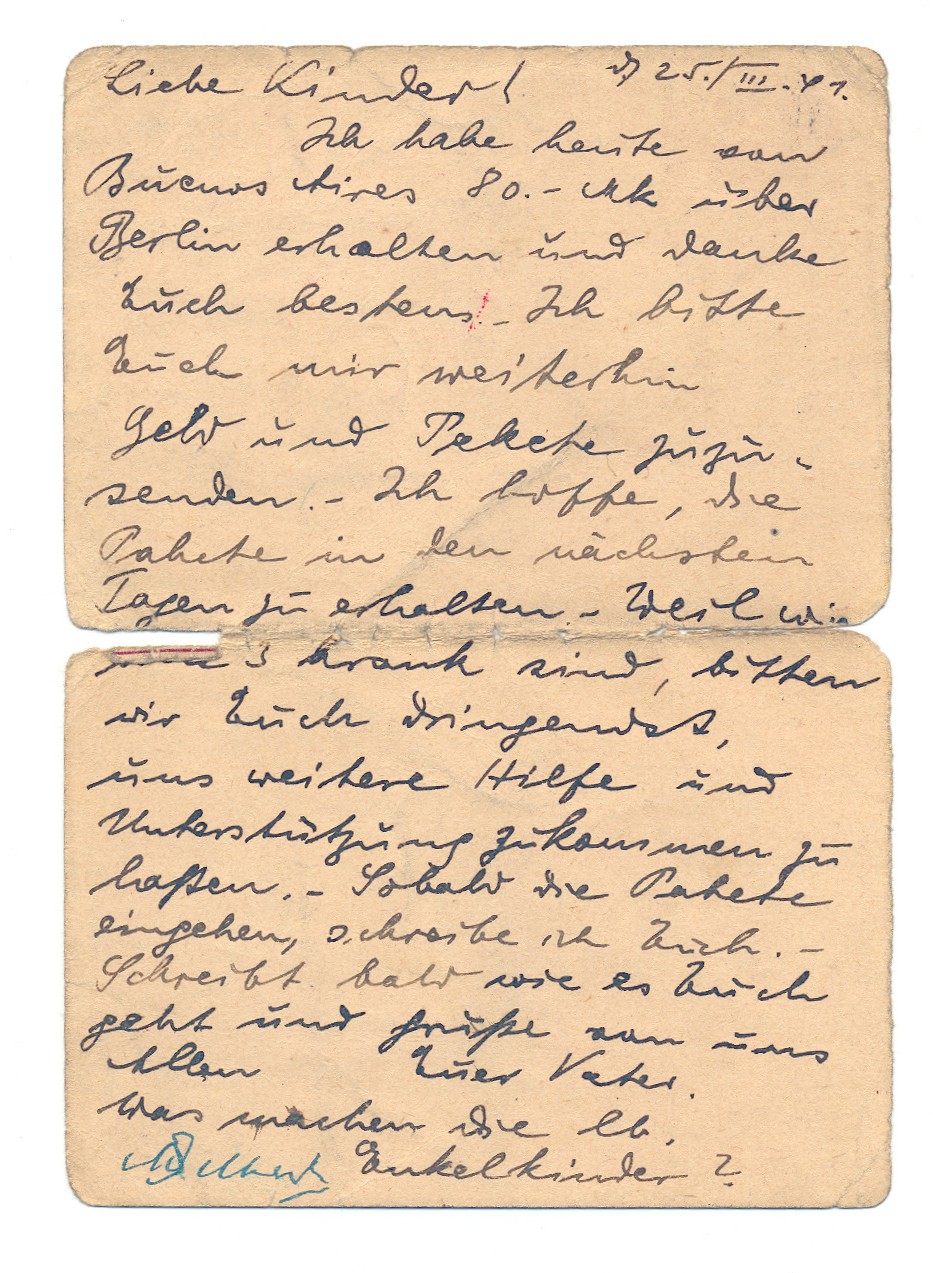 Liebe Kinder! d, 25./III. 41.
Ich habe heute von
Buenos Aires 80.- Mk über
Berlin erhalten und danke
Euch bestens. - Ich bitte
Euch mir weiterhin
Geld und Pakete zuzu-
senden. - Ich hoffe, die
Pakete in den nächsten
Tagen zu erhalten. - Weil wir
3 krank sind, bitten
wir Euch dringendst,
uns weitere Hilfe und
Unterstützung zukommen zu
laßen. - Sobald die Pakete
eingehen, schreibe ich Euch. -
Schreibt bald wie es Euch
geht und Grüße von uns
Allen Euer Vater.
Was machen die lb.
Enkelkinder?